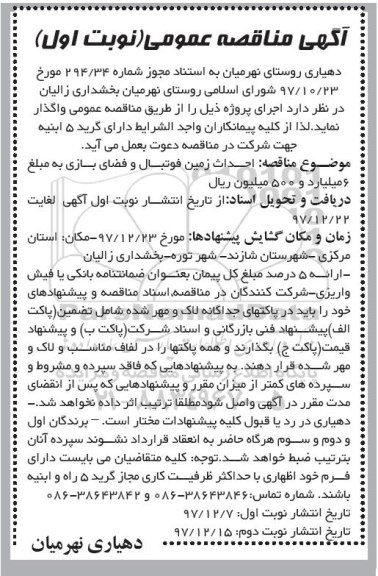 آگهی مناقصه عمومی(نوبت اول)
دهیاری روستای نهرمیان به استناد مجوز شماره ۲۹۴/۳۴ مورخ
۹۷/۱۰/۲۳ شورای اسلامی روستای نهرمیان بخشداری زالیان
در نظر دارد اجرای پروژه ذیل را از طریق مناقصه عمومی واگذار
نماید.لذا از کلیه پیمانکاران واجد الشرایط دارای گرید ۵ ابنیه
جهت شرکت در مناقصه دعوت بعمل می آید.
موضوع مناقصه: احداث زمین فوتبال و فضای بازی به مبلغ
۶میلیارد و ۵۰۰ میلیون ریال
دریافت و تحویل اسناد:از تاریخ انتشار نوبت اول آگهی لغایت
۹۷/۱۲/۲۲
زمان و مکان گشایش پیشنهادها: مورخ ۹۷/۱۲/۲۳-مکان: استان
مرکزی -شهرستان شازند- شهر توره-بخشداری زالیان
-ارائه ۵ درصد مبلغ کل پیمان بعنوان ضمانتنامه بانکی یا فیش
واریزی-شرکت کنندگان در مناقصه،اسناد مناقصه و پیشنهادهای
خود را باید در پاکتهای جداگانه لاک و مهر شده شامل تضمین(پاکت
الف)پیشنهاد فنی بازرگانی و اسناد شرکت(پاکت ب) و پیشنهاد
قیمت(پاکت ج) بگذارند و همه پاکتها را در لفاف مناسب و لاک و
مهر شده قرار دهند. به پیشنهادهایی که فاقد سپرده و مشروط و
سپرده های کمتر از میزان مقرر و پیشنهادهایی که پس از انقضای
مدت مقرر در آگهی واصل شودمطلقا ترتیب اثر داده نخواهد شد.-
دهیاری در رد یا قبول کلیه پیشنهادات مختار است. – برندگان اول
و دوم و سوم هرگاه حاضر به انعقاد قرارداد نشوند سپرده آنان
بترتیب ضبط خواهد شد.توجه: کلیه متقاضیان می بایست دارای
فرم خود اظهاری با حداکثر ظرفیت کاری مجاز گرید ۵ راه و ابنیه
باشند. شماره تماس:۳۸۶۴۳۸۴۶-۰۸۶ و ۳۸۶۴۳۸۴۲-۰۸۶
تاریخ انتشار نوبت اول: ۹۷/۱۲/۷
تاریخ انتشار نوبت دوم: ۹۷/۱۲/۱۵
دهیاری نهرمیان